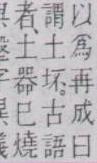 以爲再成曰
謂土坏古語
者土器已燒